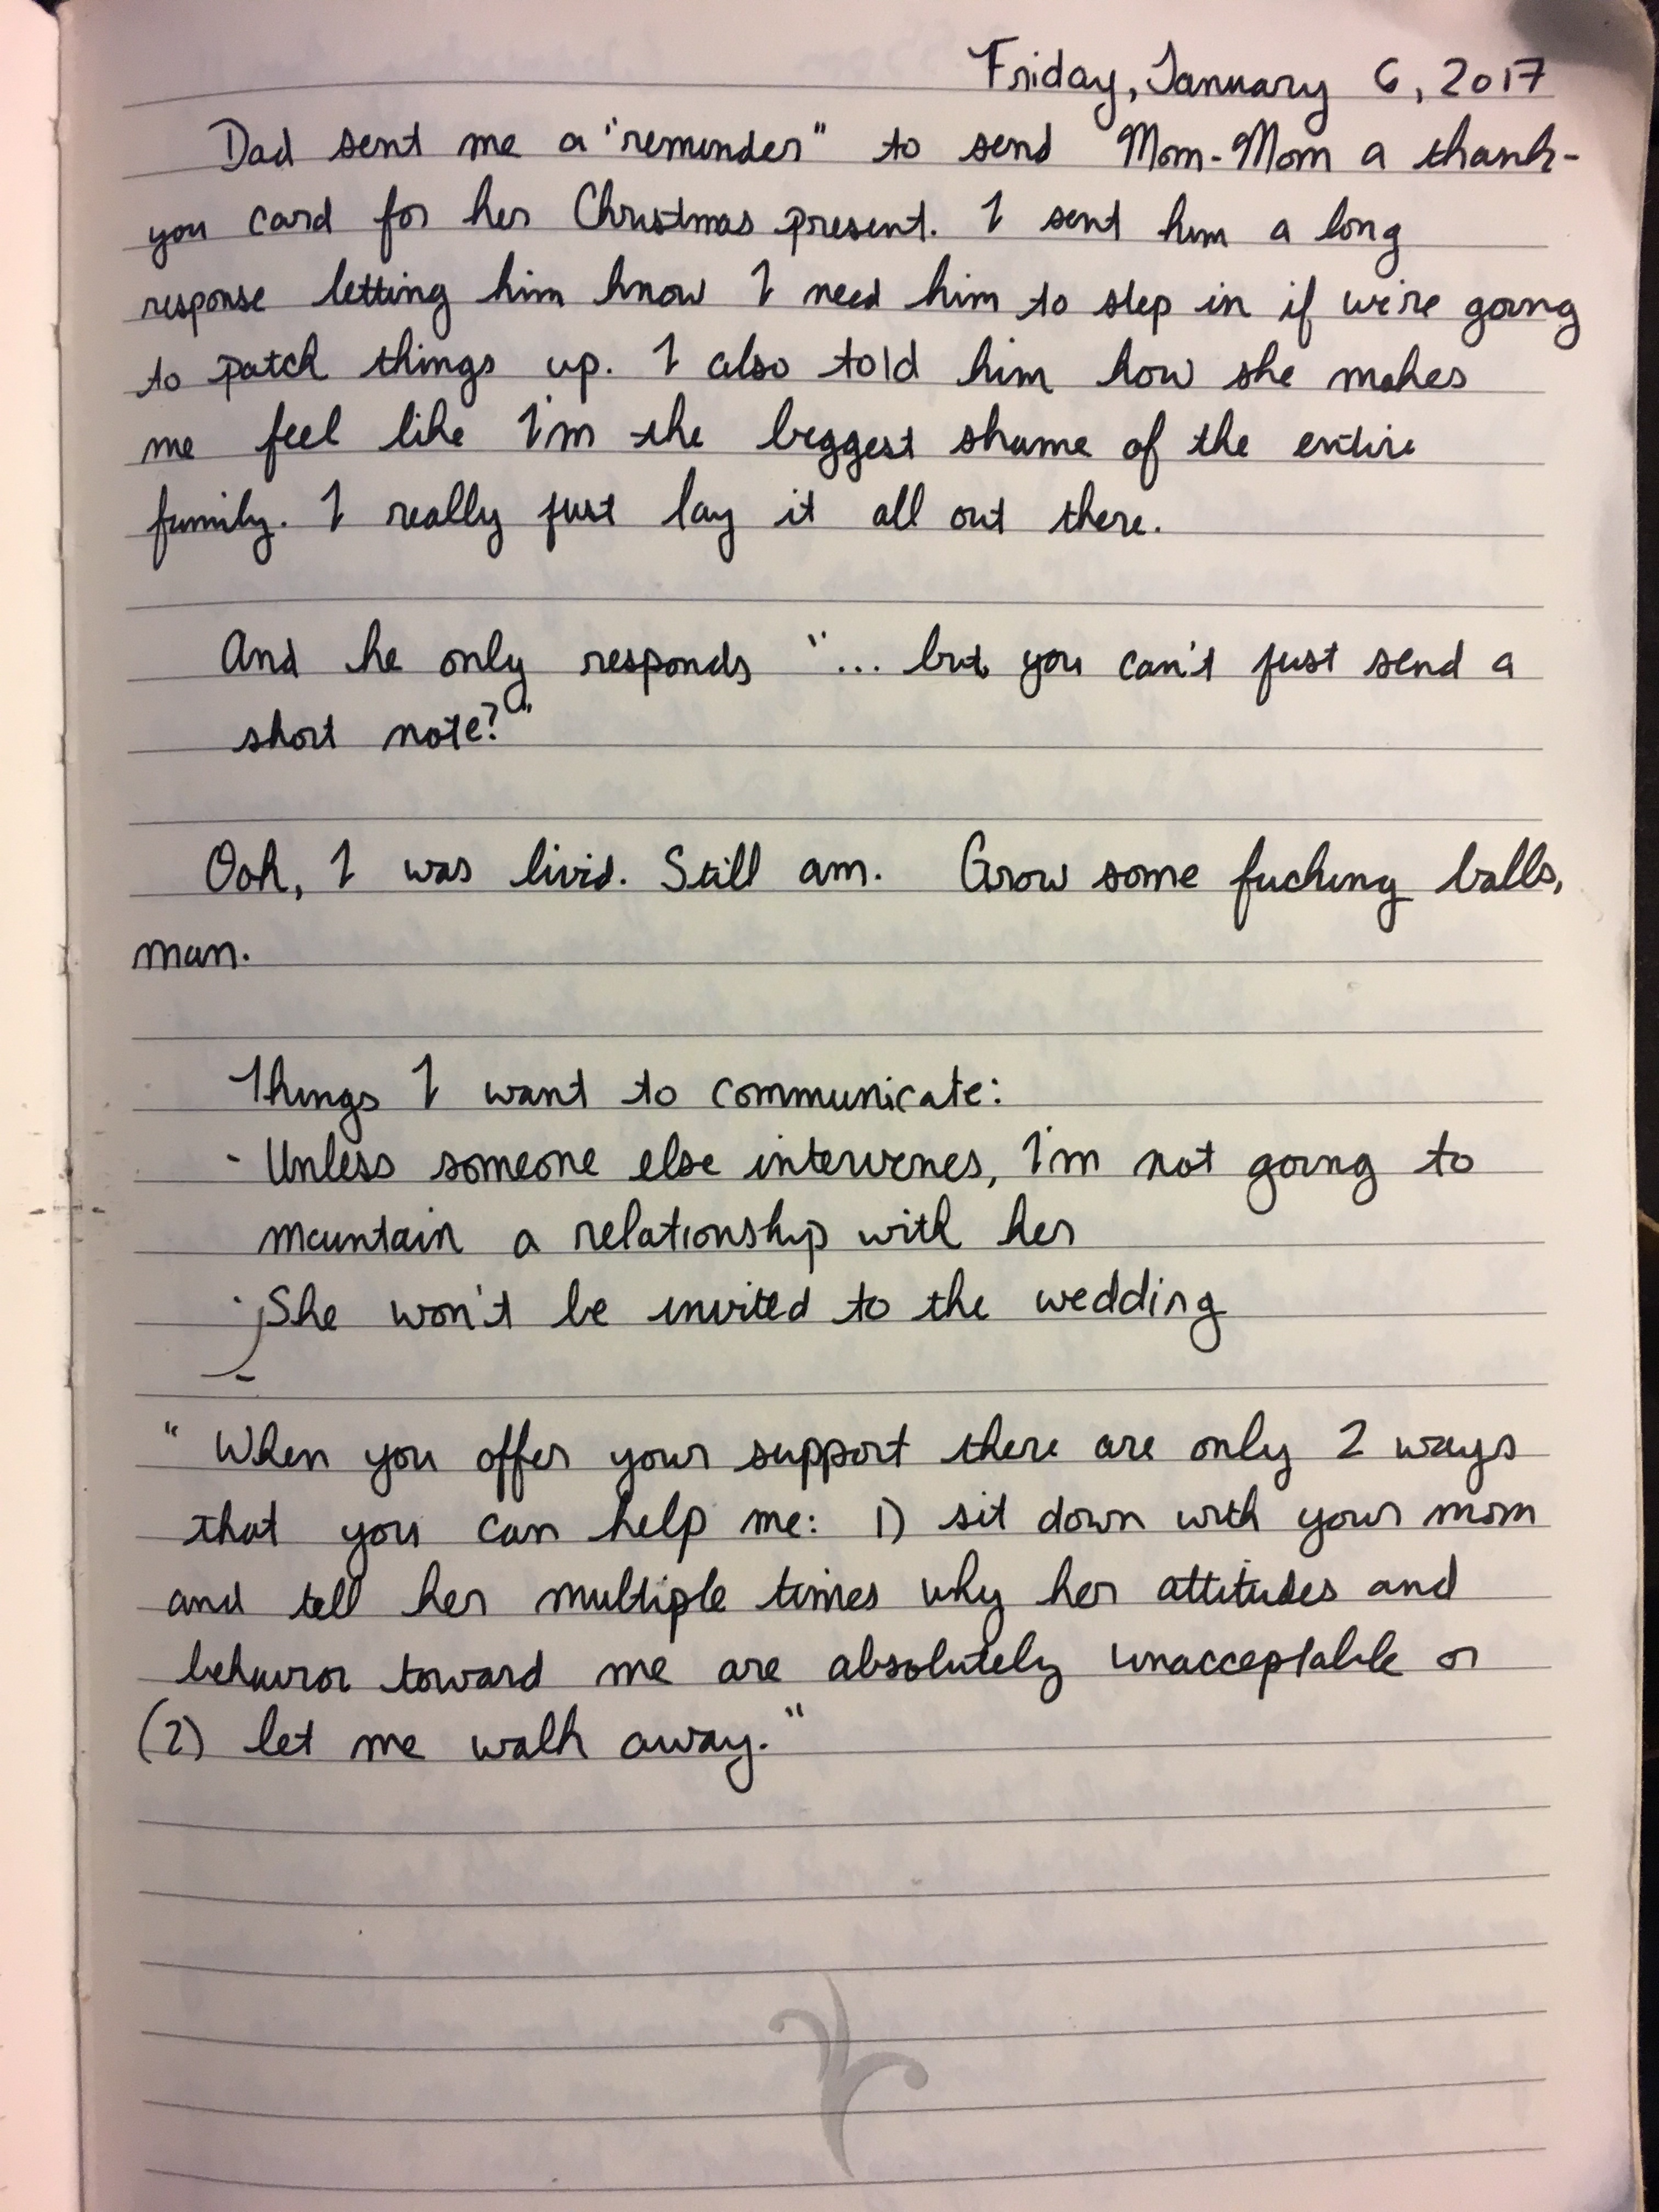 Friday, January 6, 2017
Dad sent me a "reminder" to send Mom-Mom a thank-
you card for her Christmas present. I sent him a long
response letting him know I need him to step in if we're going
to patch things up. I also told him how she makes
me feel like I'm the biggest shame of the entire
family. I really just lay it all out there.
And he only responds "... but you can't just send a
short note?"
Ooh, I was livid. Still am. Grow some fucking balls,
man.
Things I want to communicate:
- Unless someone else intervenes, I'm not going to
maintain a relationship with her
- She won't be invited to the wedding
-
"When you offer your support there are only 2 ways
that you can help me: 1) sit down with your mom
and tell her multiple times why her attitudes and
behavior toward me are absolutely unacceptable or
(2) let me walk away."